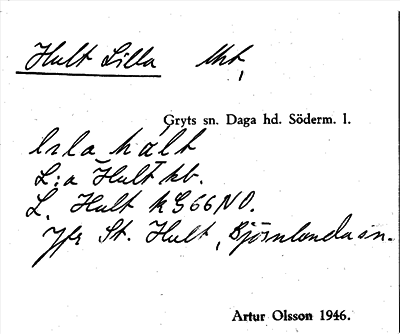 Hult Lilla
Gryts sn. Daga hd. Söderm. l.
lila hält
L:a Hult kb.
L. Hult kG66NO.
Jfr St. Hult, Björnlunda sn.
Artur Olsson 1946.